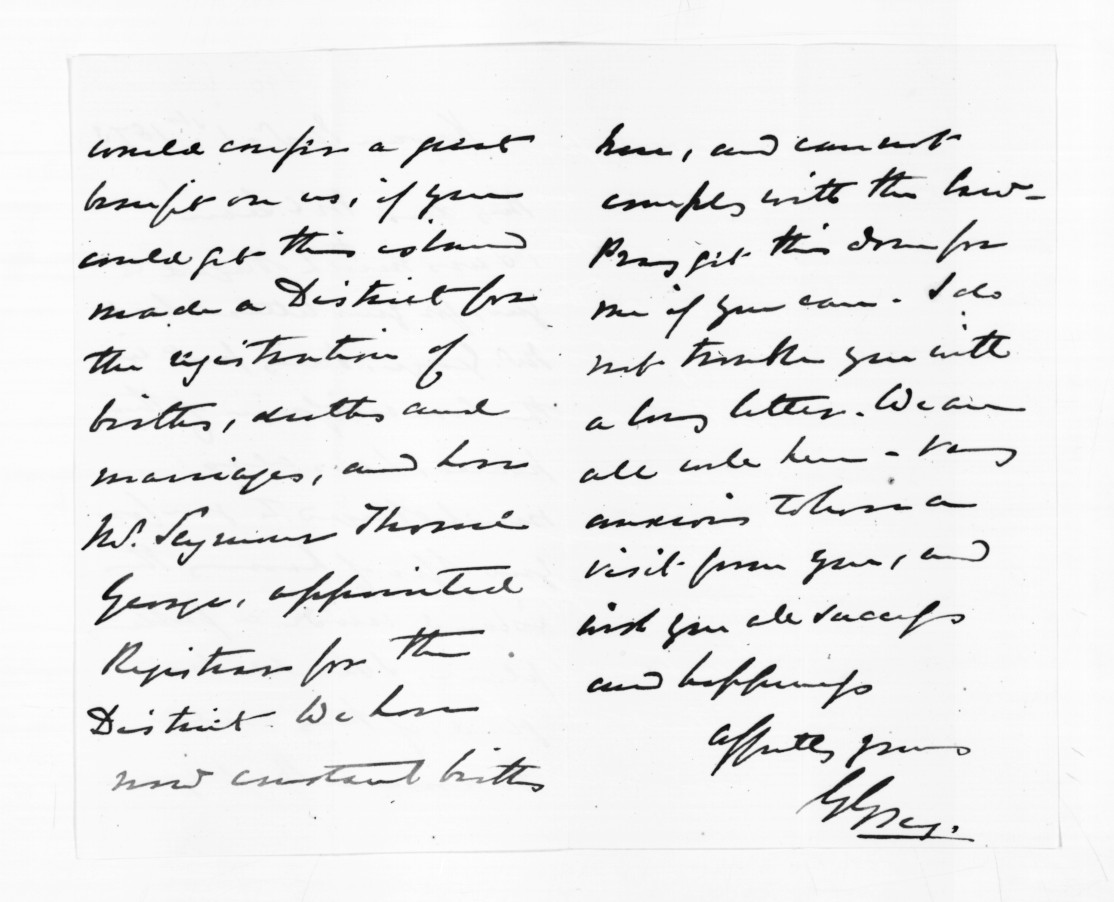 would confer a great
benefit on us, if you
could get this island
made a District for
the registration of
births, deaths and
marriages, and have
Mr. Seymour Thorne
George, appointed
Registrar for the
District. We have
now constant births
here, and cannot
comply with the law-
Pray get this done for
me if you can. I do
not trouble you with
a long letter. We are
all well here - Very
anxious to have a
visit from you, and
wish you all success
and happiness
affectly yours
GGrey.